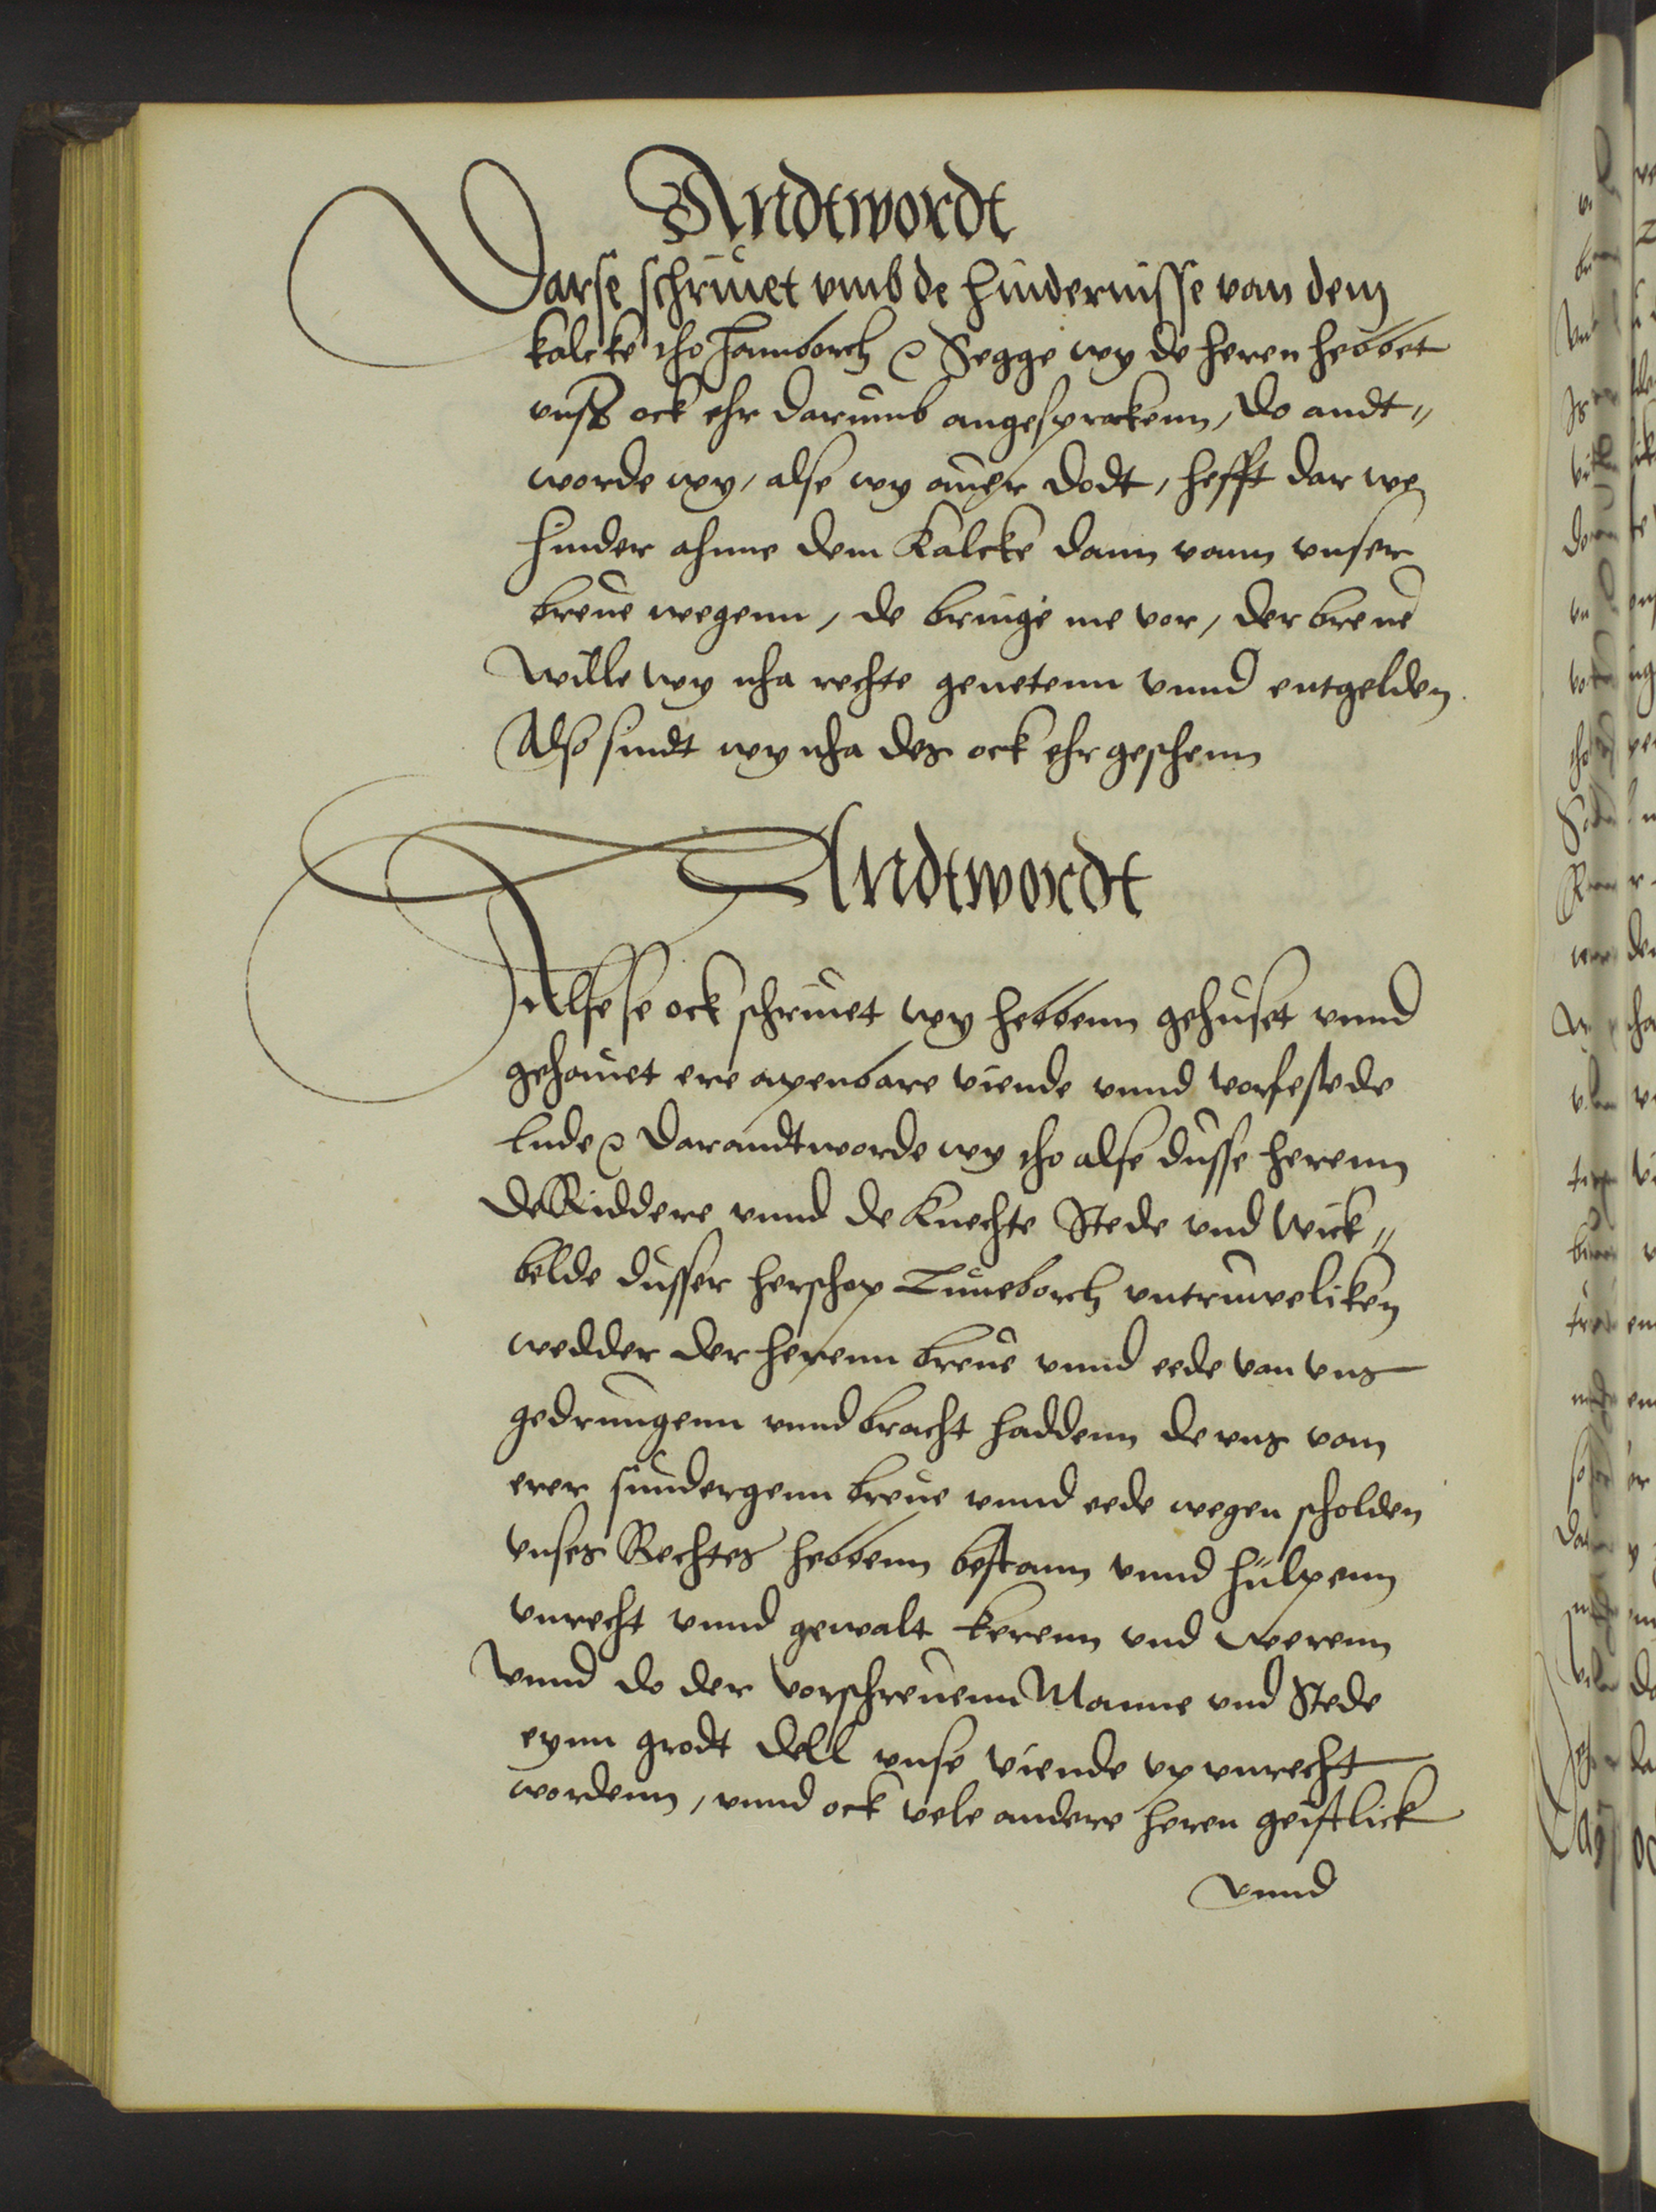 Andtwordt
Dar se schriuet vmb de hindernisse van dem
kalcke tho Hamborch ꝛc Segge wy de heren hebbet
vnß ock ehr darumb angesprokenn, do andt„
worde wy, alse wy auer dodt, hefft dar we
hinder ahnne dem Kalcke dann vann vnser
breue wegenn, de bringe me vor, der breue
wille wy nha rechte genetenn vnnd entgelden
Alß sindt wy nha des ock ehr geschenn
Andtwordt
Alse se ock schriuet wy hebbenn gehuset vnnd
gehauet ere apenbare viende vnnd vorfestede
lude ꝛc Dar andtworde wy tho alse dusse herenn
de Riddere vnnd de Knechte Stede vnd Wick„
belde dusser herschop Luneborch vntruweliken
wedder der herenn breue vnnd eede van vns
gedrungenn vnnd bracht haddenn de vns vann
erer sundergenn breue vnnd eede wegen scholden
vnses Rechtes hebbenn bestann vnnd hulpenn
vnrecht vnnd gewalt kerenn vnd weerenn
Vnnd do der vorschreuenn Manne vnd Stede
eynn grodt dell vnse viende vp vnrecht
wordenn, vnnd ock vele andere heren geistlick
vnnd